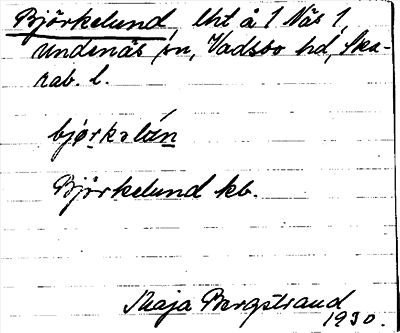 Björkelund, lht å 1 Näs 1,
Undenäs sn, Vadsbo hd, Ska-
rab. l.
bjørkəlún
Björkelund kb.
Maja Bergstrand
1930.